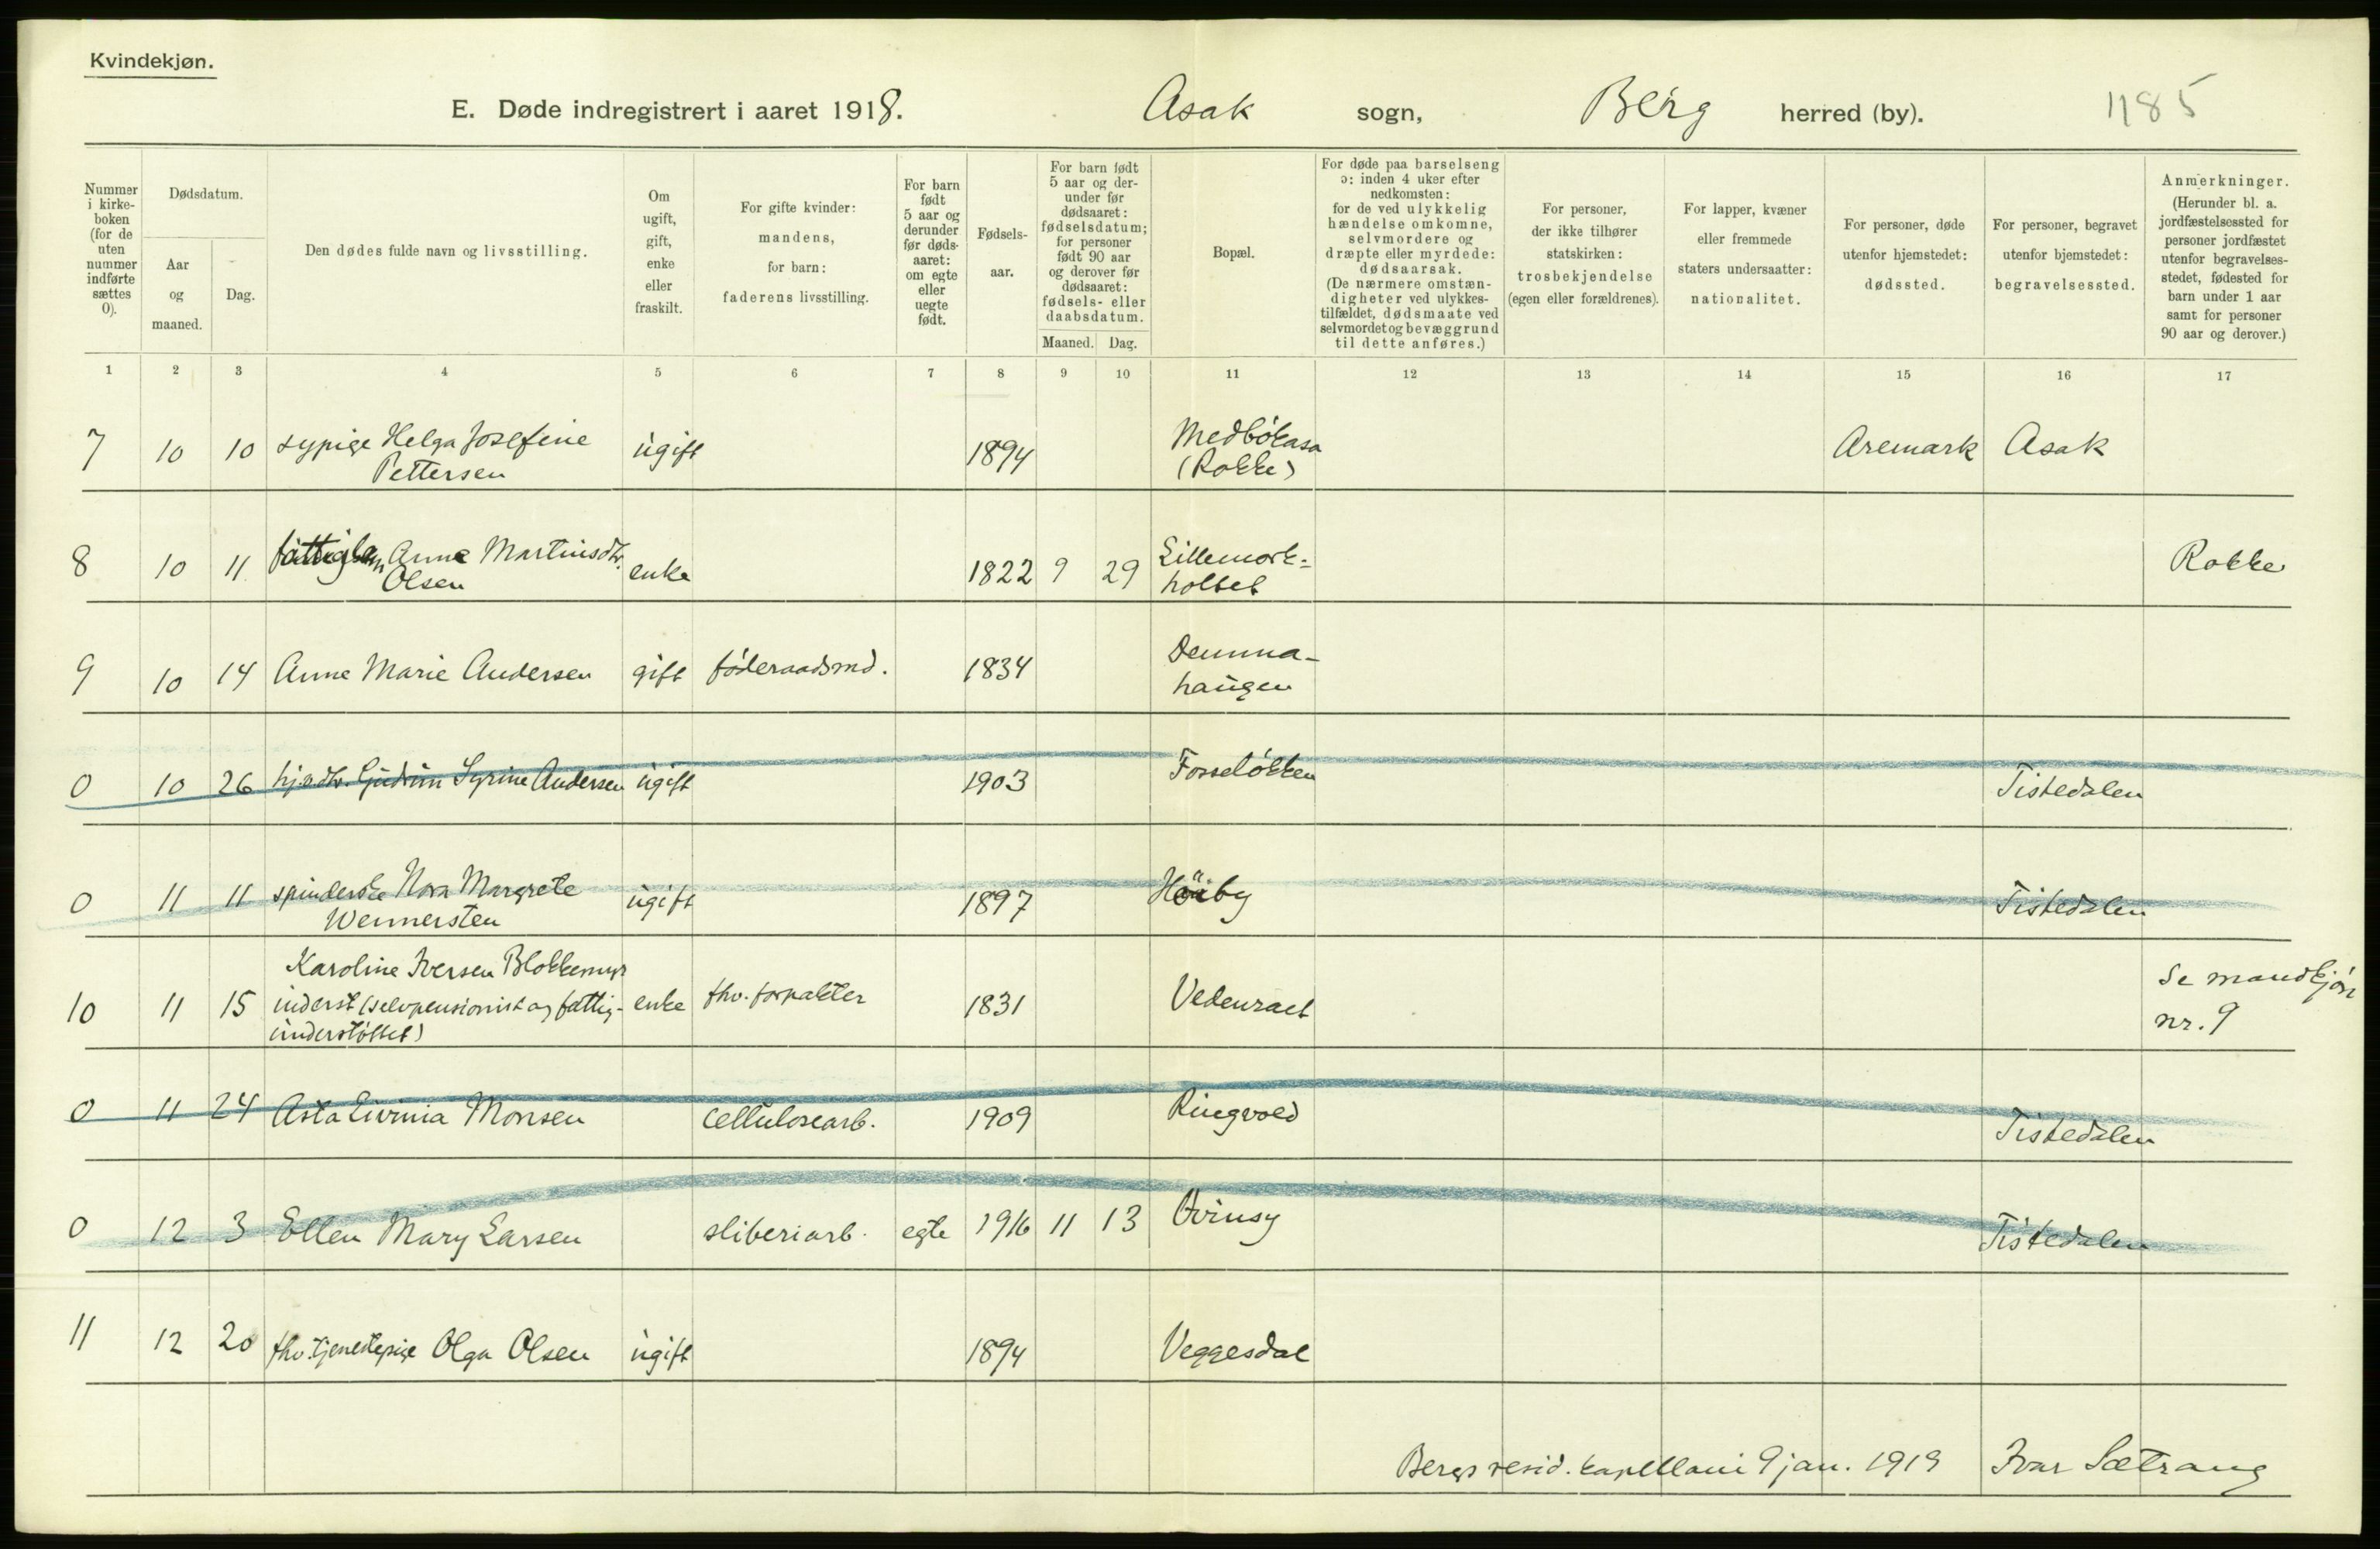 Kvindekjøn.
E. Døde indregistrert i aaret 1918. Asak sogn, Berg herred (by). 1185
Nummer i kirke-boken (for de uten nummer indførte sættes 0).
Dødsdatum.
Aar og maaned.
Dag.
Den dødes fulde navn og livsstilling.
Om ugift, gift, enke eller fraskilt.
For gifte kvinder: mandens, for barn: faderens livsstilling.
For barn født 5 aar og derunder før døds-aaret: om egte eller uegte født.
Fødsels-aar.
For barn født 5 aar og der-under før dødsaaret: fødselsdatum; for personer født 90 aar og derover før dødsaaret: fødsels- eller daabsdatum.
Maaned. Dag.
Bopæl.
For døde paa barselseng ɔ: inden 4 uker efter nedkomsten: for de ved ulykkelig hændelse omkomne, selvmordere og dræpte eller myrdede: dødsaarsak. (De nærmere omstæn-digheter ved ulykkes-tilfældet, dødsmaate ved selvmordet og bevæggrund til dette anføres.)
For personer, der ikke tilhører statskirken: trosbekjendelse (egen eller forældrenes).
For lapper, kvæner eller fremmede staters undersaatter: nationalitet.
For personer, døde utenfor hjemstedet: dødssted.
For personer, begravet utenfor bjemstedet: begravelsessted.
Anmerkninger. (Herunder bl. a. jordfæstelsessted for personer jordfæstet utenfor begravelses-stedet, fødested for barn under 1 aar samt for personer 90 aar og derover.)
1 2 3 4 5 6 7 8 9 10 11 12 13 14 15 16 17
7 10 10 sypige Helga Josefine ugift 1894 Medbökasa Aremark Asak
Pettersen (Rokke)
8 10 11 fattiglem Anne Martinsdtr. enke 1822 9 29 Lillemork= Rokke
Olsen holtet
9 10 14 Anne Marie Andersen gift föderaadsmd. 1834 Demma-
haugen
0 10 26 hj.v.dtr. Gudrun Syrine Andersen ugift 1903 Fosselökken Tistedalen
0 11 11 spinderske Nora Margrete ugift 1897 Haaby Tistedalen
Wennersten
Karoline Iversen Blokkemyr Se mandkjøn
10 11 15 inderst (selvpensionist og fattig- enke fhv. forpakter 1831 Vedenraet nr. 9
understöttet)
0 11 24 Asta Livinia Monsen cellulosearb. 1909 Ringvold Tistedalen
0 12 3 Ellen Mary Larsen sliberiarb. egte 1916 11 13 Tistedalen
11 12 20 fhv. tjenestepige Olga Olsen ugift 1894 Veggesdal
Bergs resid. kapellani 9 jan. 1919 Ivar Sætrang